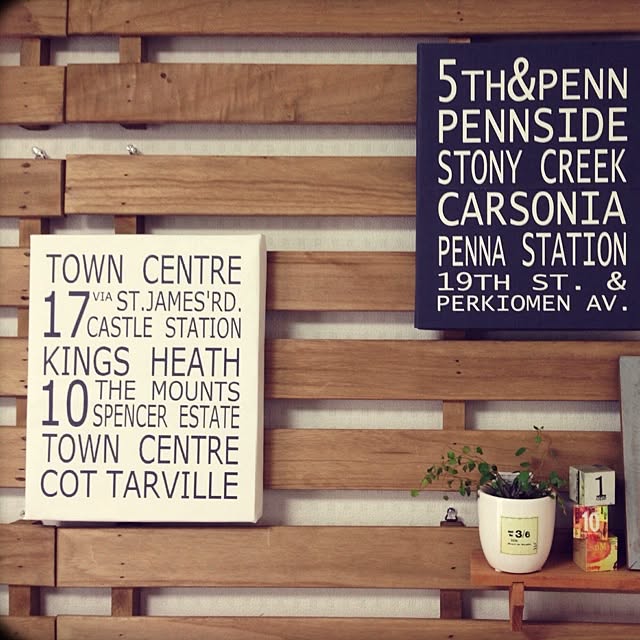 5TH&PENN
PENNSIDE
STONY CREEK
CARSONIA
PENNA STATION
19TH ST. &
PERKIOMEN AV.
TOWN CENTRE
17 VIA ST.JAMES'RD.
CASTLE STATION
KINGS HEATH
10 THE MOUNTS
SPENCER ESTATE
TOWN CENTRE
COT TARVILLE
3/6
1
10